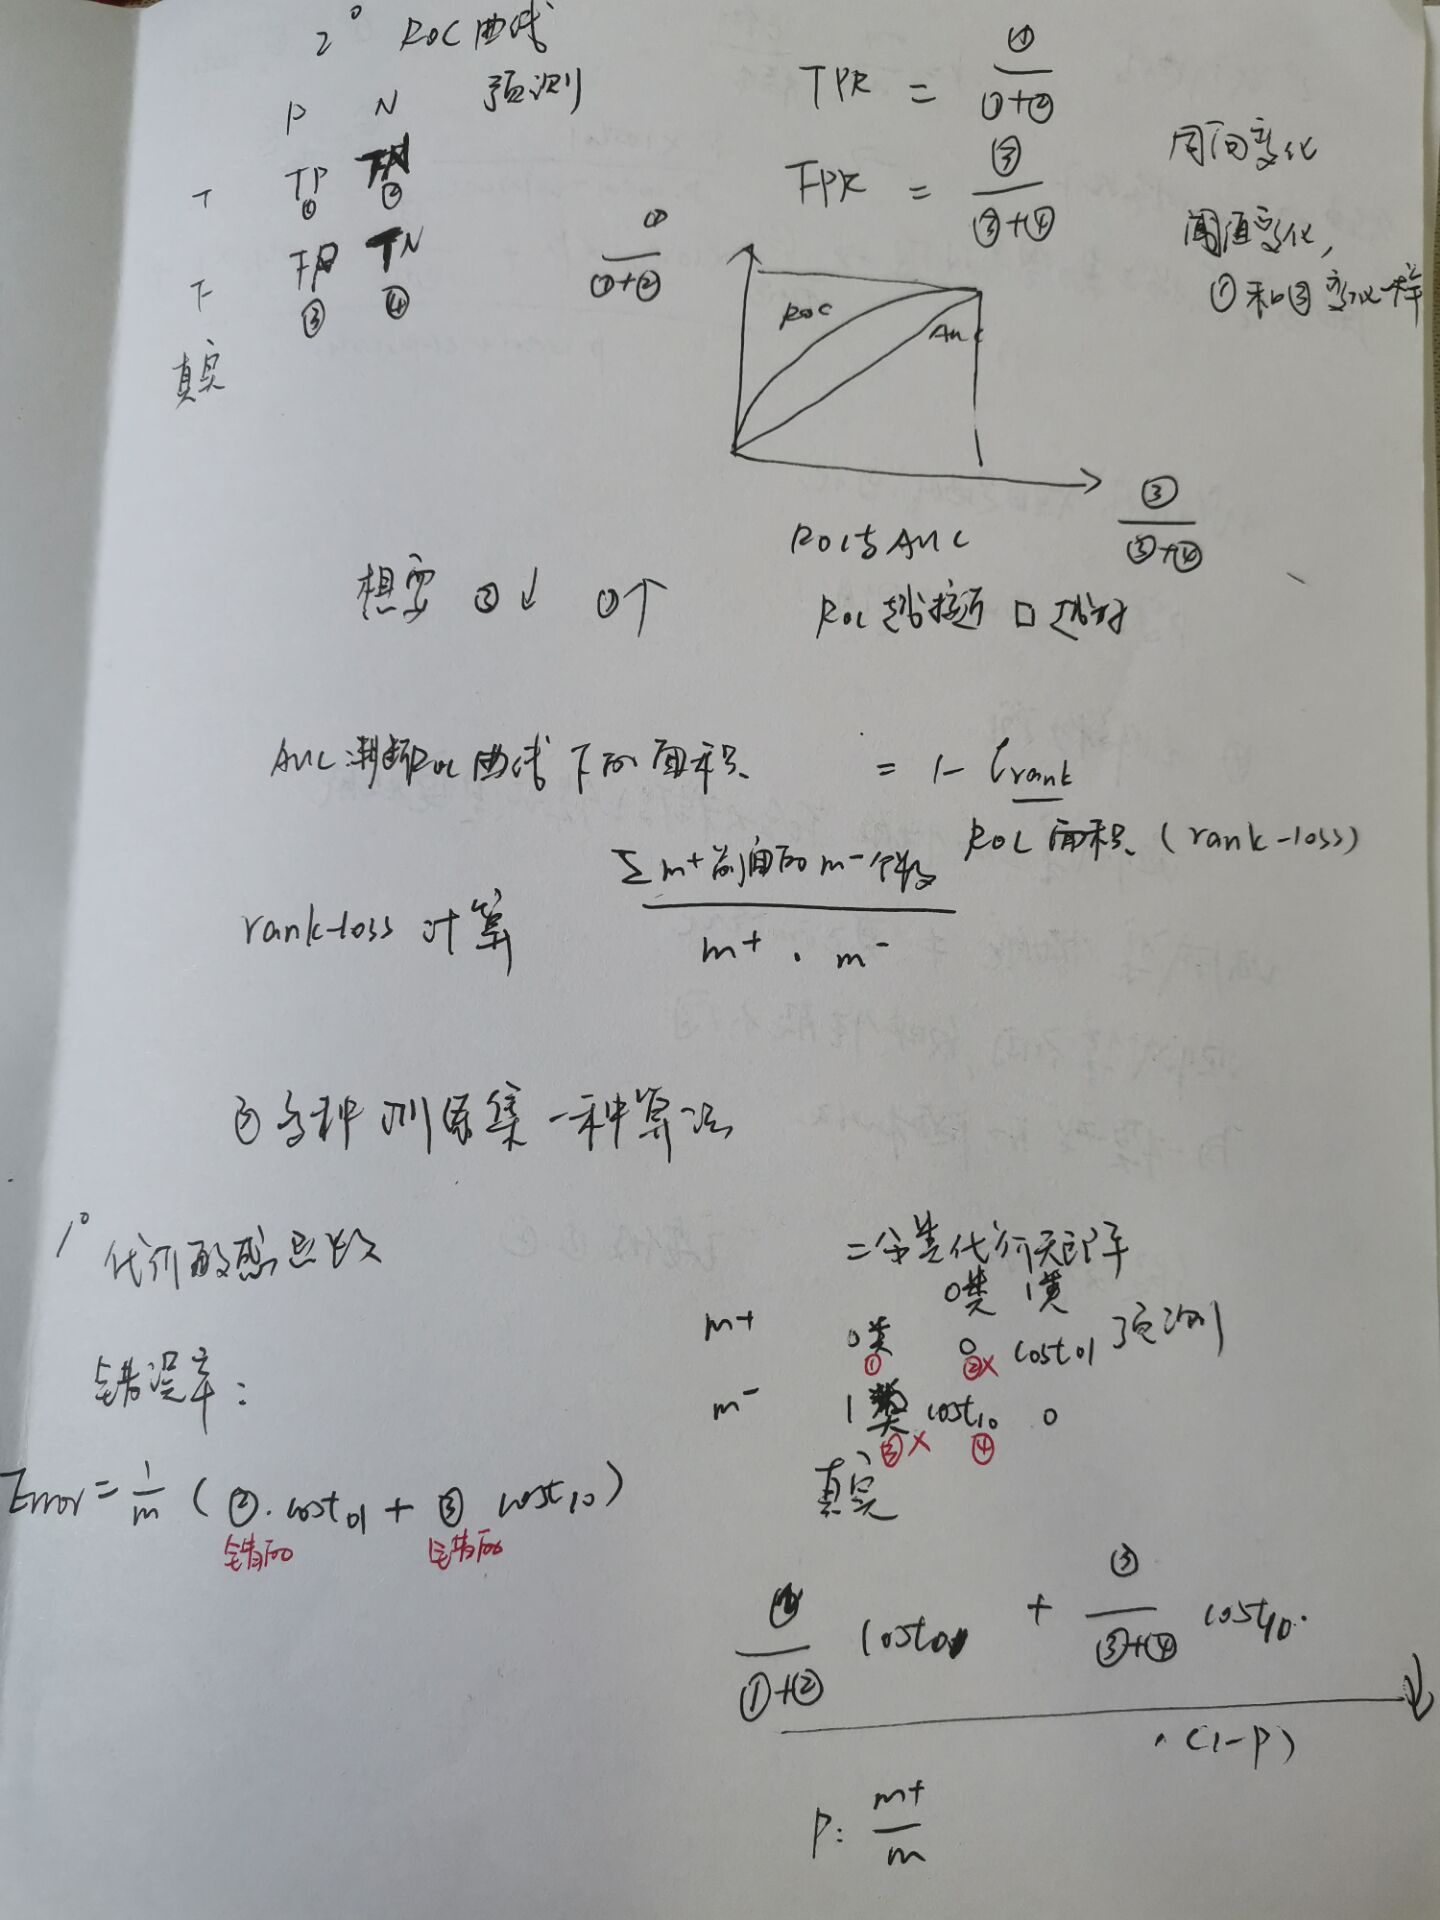 2° ROC曲线
P N 预测
T TP FN
① ②
F FP TN
③ ④
真实
TPR = ①/(①+②)
FPR = ③/(③+④)
同向变化
阈值变化,
①和③变化一样
①/(①+②)
ROC
AUC
③/(③+④)
ROC与AUC
ROC越接近口越好
想要 ②↓ ①↑
AUC 判断ROC曲线下的面积 = 1-lrank
ROC面积 (rank-loss)
rank-loss 计算 Σm+前面的m-个数/(m+ · m-)
③多种训练集一种算法
1° 代价敏感曲线
错误率:
Error = 1/m (②·cost01 + ③ cost10)
错的 错的
二分类代价矩阵
0类 1类
m+ 0类 0 cost01 预测
① ②×
m- 1类 cost10 0
③× ④
真实
②/(①+②) cost01 + ③/(③+④) cost10.
·(1-P)
P: m+/m